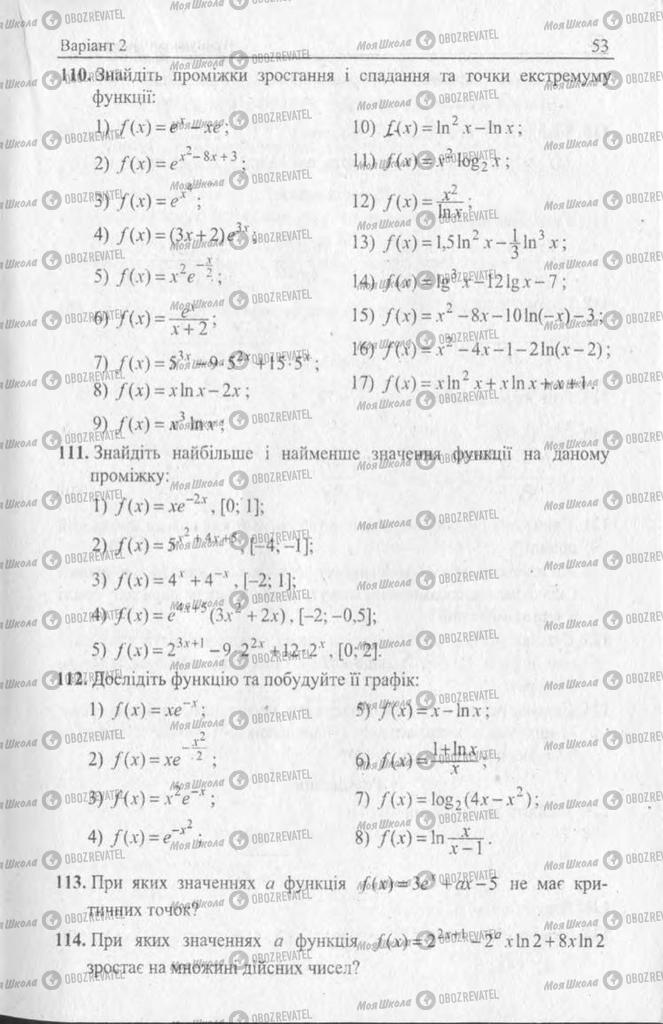 Варіант 2 53
110. Знайдіть проміжки зростання і спадання та точки екстремуму
функції:
1) f(x) = e^x – xe;
2) f(x) = e^{x^2 – 8x + 3};
3) f(x) = e^{x^4};
4) f(x) = (3x + 2)e^{3x};
5) f(x) = x^2 e^{–x/2};
6) f(x) = e^x/(x + 2);
7) f(x) = 5^{3x} – 9·5^{2x} + 15·5^x;
8) f(x) = x ln x – 2x;
9) f(x) = x^3 ln x;
10) f(x) = ln^2 x – ln x;
11) f(x) = x^2 log_2 x;
12) f(x) = x^2/ln x;
13) f(x) = 1,5 ln^2 x – 1/3 ln^3 x;
14) f(x) = lg^3 x – 12 lg x – 7;
15) f(x) = x^2 – 8x – 10 ln(–x) – 3;
16) f(x) = x^2 – 4x – 1 – 2 ln(x – 2);
17) f(x) = x ln^2 x + x ln x + x + 1.
111. Знайдіть найбільше і найменше значення функції на даному
проміжку:
1) f(x) = xe^{–2x}, [0; 1];
2) f(x) = 5^{x^2 + 4x + 5}, [–4; –1];
3) f(x) = 4^x + 4^{–x}, [–2; 1];
4) f(x) = e^{4x+5}(3x^2 + 2x), [–2; –0,5];
5) f(x) = 2^{3x+1} – 9·2^{2x} + 12·2^x, [0; 2].
112. Дослідіть функцію та побудуйте її графік:
1) f(x) = xe^{–x};
2) f(x) = xe^{–x^2/2};
3) f(x) = x^2 e^{–x};
4) f(x) = e^{–x^2};
5) f(x) = x – ln x;
6) f(x) = (1 + ln x)/x;
7) f(x) = log_2(4x – x^2);
8) f(x) = ln x/(x – 1).
113. При яких значеннях a функція f(x) = 3e^x + ax – 5 не має кри-
тичних точок?
114. При яких значеннях a функція f(x) = 2^{2x+1} – 2^a x ln 2 + 8x ln 2
зростає на множині дійсних чисел?
Моя Школа OBOZREVATEL